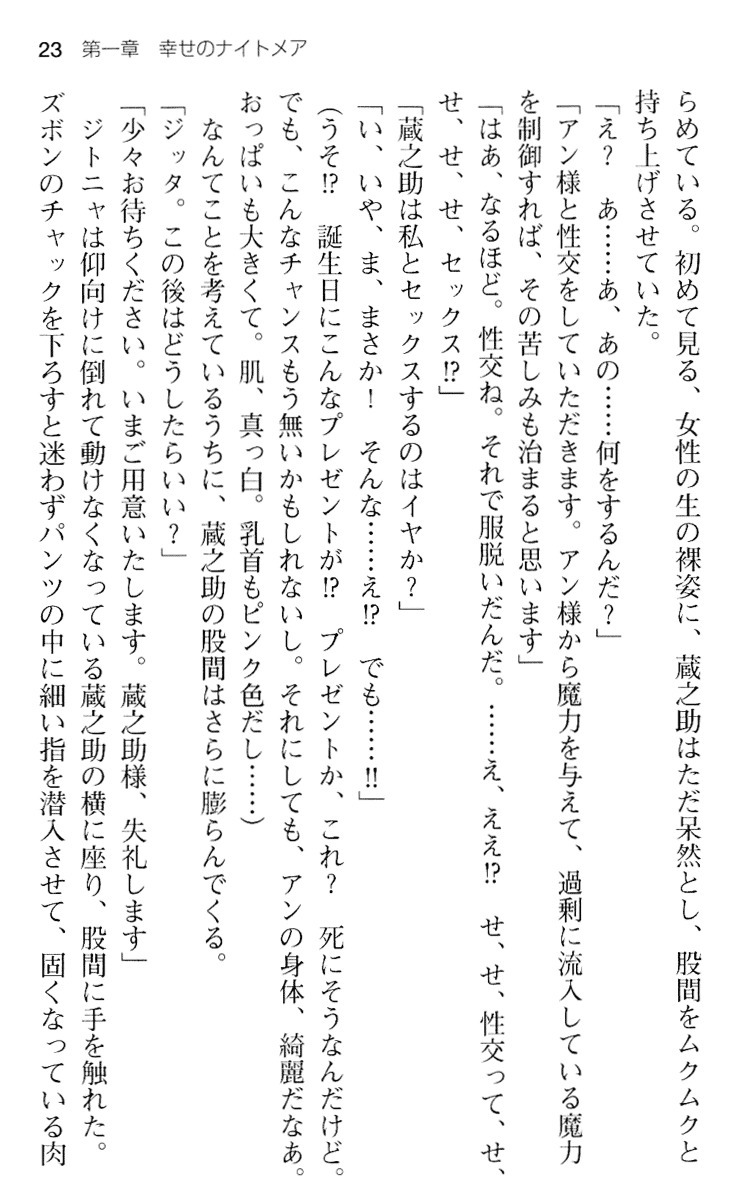 23 第一章 幸せのナイトメア
らめている。初めて見る、女性の生の裸姿に、蔵之助はただ呆然とし、股間をムクムクと
持ち上げさせていた。
「え? あ……あ、あの……何をするんだ?」
「アン様と性交をしていただきます。アン様から魔力を与えて、過剰に流入している魔力
を制御すれば、その苦しみも治まると思います」
「はあ、なるほど。性交ね。それで服脱いだんだ。……え、ええ!? せ、せ、性交って、せ、
せ、せ、せ、セックス!?」
「蔵之助は私とセックスするのはイヤか?」
「い、いや、ま、まさか! そんな……え!? でも……!!」
(うそ!? 誕生日にこんなプレゼントが!? プレゼントか、これ? 死にそうなんだけど。
でも、こんなチャンスもう無いかもしれないし。それにしても、アンの身体、綺麗だなあ。
おっぱいも大きくて。肌、真っ白。乳首もピンク色だし……)
なんてことを考えているうちに、蔵之助の股間はさらに膨らんでくる。
「ジッタ。この後はどうしたらいい?」
「少々お待ちください。いまご用意いたします。蔵之助様、失礼します」
ジトニャは仰向けに倒れて動けなくなっている蔵之助の横に座り、股間に手を触れた。
ズボンのチャックを下ろすと迷わずパンツの中に細い指を潜入させて、固くなっている肉